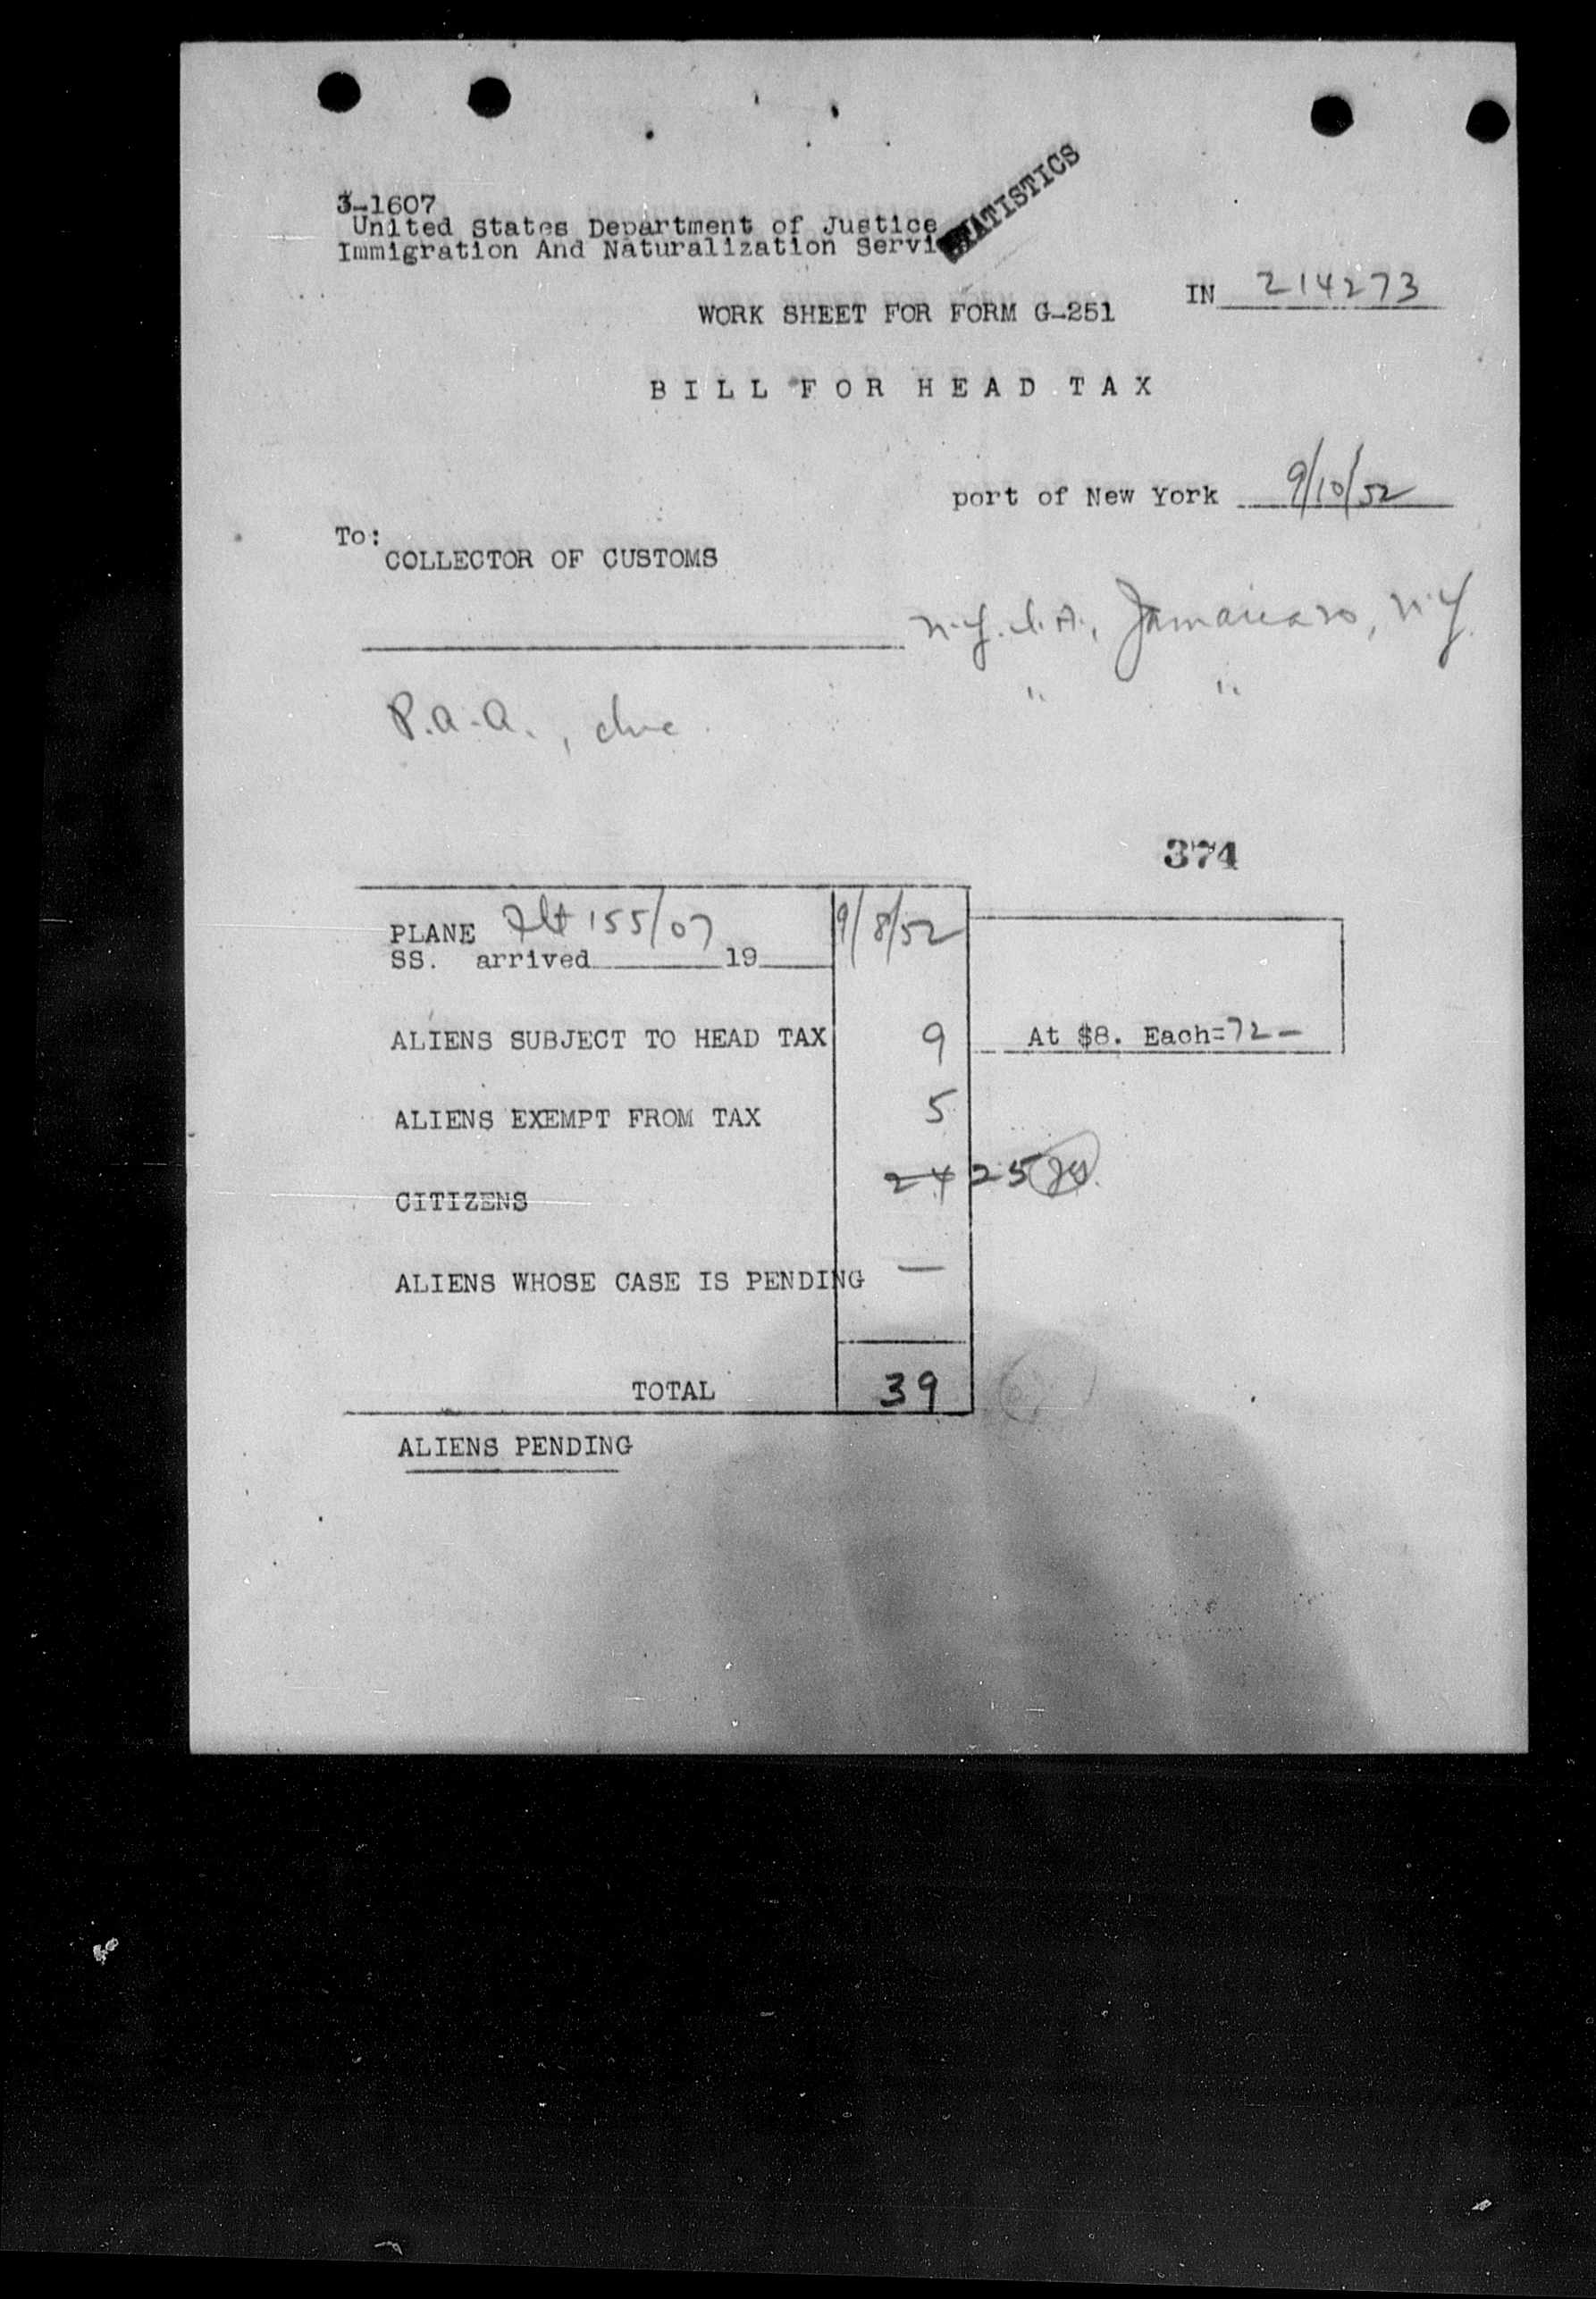 3-1607
United States Department of Justice
Immigration And Naturalization Servi
STATISTICS
IN 214273
WORK SHEET FOR FORM G-251
BILL FOR HEAD TAX
port of New York 9/10/52
To:
COLLECTOR OF CUSTOMS
N.Y.I.A., Jamaica, N.Y.
P.A.A., " "
374
PLANE Flt 155/07 9/8/52
SS. arrived 19
ALIENS SUBJECT TO HEAD TAX 9 At $8. Each=72-
ALIENS EXEMPT FROM TAX 5
CITIZENS 24 25
ALIENS WHOSE CASE IS PENDING —
TOTAL 39
ALIENS PENDING